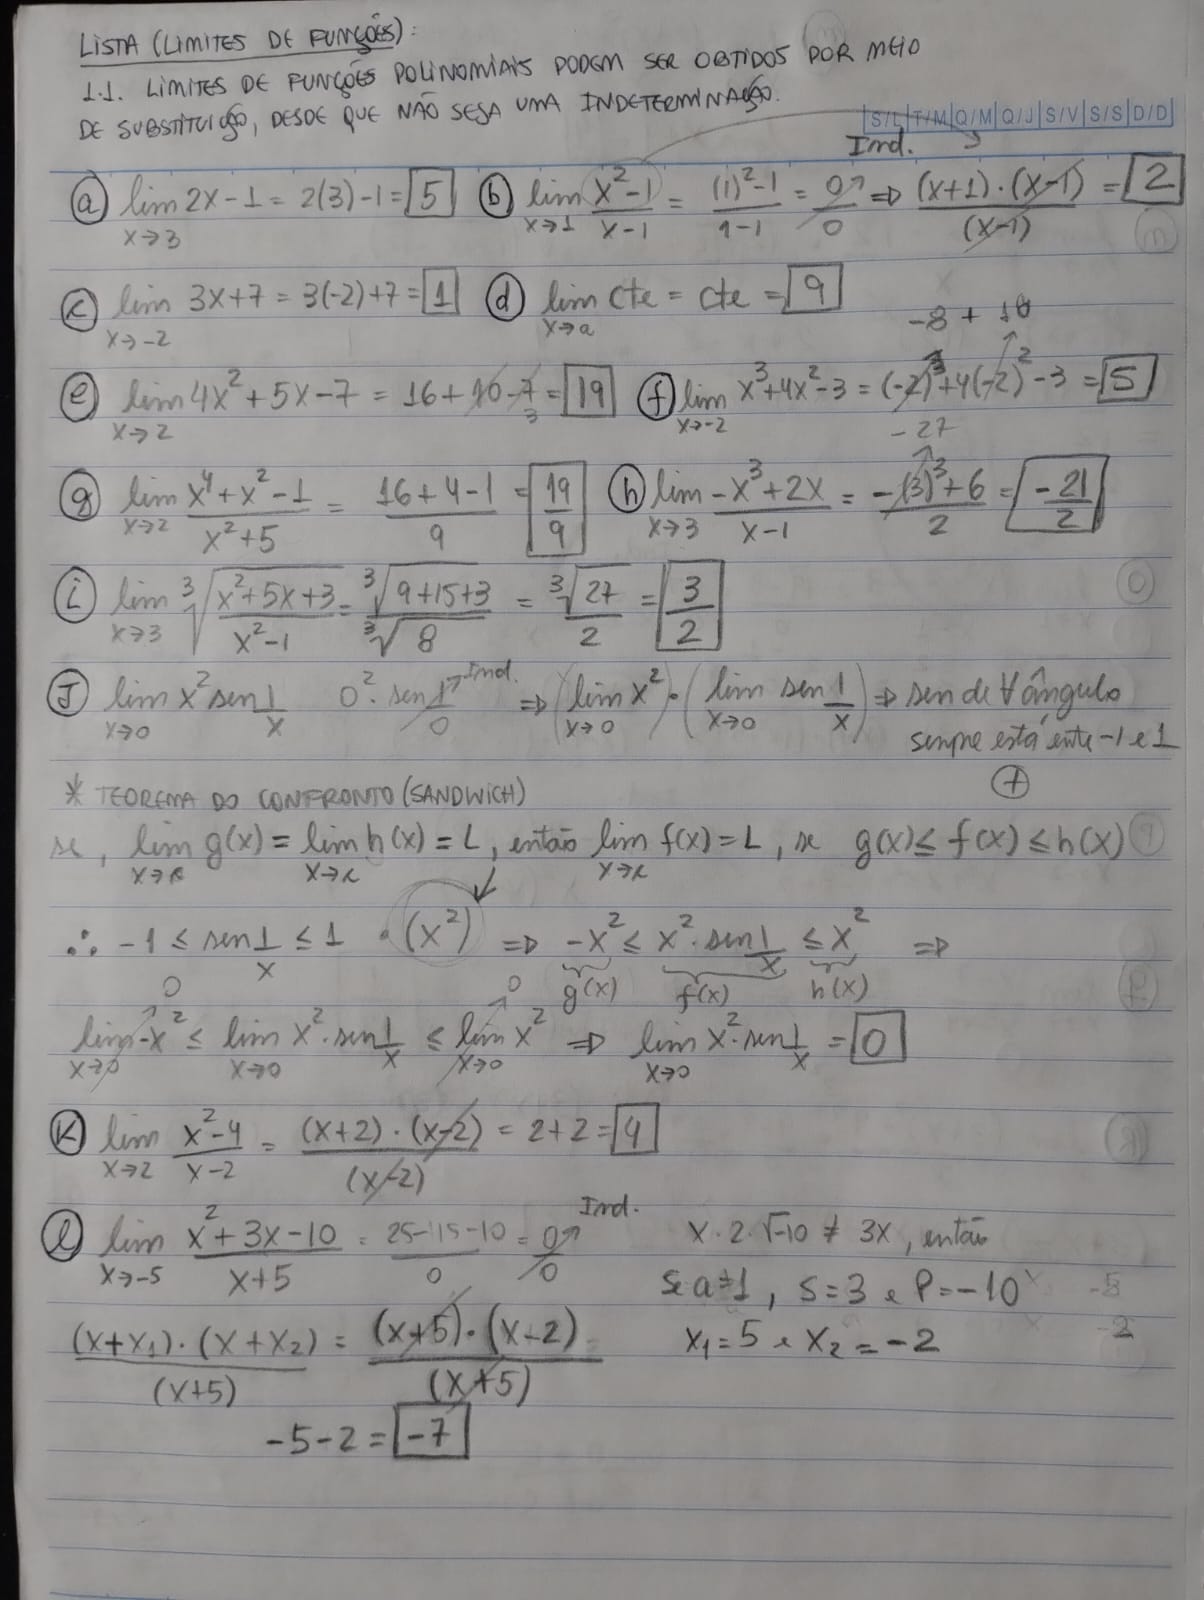 LISTA (LIMITES DE FUNÇÕES):
1.1. LIMITES DE FUNÇÕES POLINOMIAIS PODEM SER OBTIDOS POR MEIO
DE SUBSTITUIÇÃO, DESDE QUE NÃO SEJA UMA INDETERMINAÇÃO.
S/L T/M Q/M Q/J S/V S/S D/D
Ind.
(a) lim x→3 2x-1 = 2(3)-1 = 5 (b) lim x→1 (x²-1)/(x-1) = ((1)²-1)/(1-1) = 0/0 ⇒ (x+1)·(x-1)/(x-1) = 2
(c) lim x→-2 3x+7 = 3(-2)+7 = 1 (d) lim x→a cte = cte = 9
-8 + 16
(e) lim x→2 4x²+5x-7 = 16+10-7 = 19 (f) lim x→-2 x³+4x²-3 = (-2)³+4(-2)²-3 = 5
3
-27
(g) lim x→2 (x⁴+x²-1)/(x²+5) = (16+4-1)/9 = 19/9 (h) lim x→3 (-x³+2x)/(x-1) = (-(3)³+6)/2 = -21/2
(i) lim x→3 ³√((x²+5x+3)/(x²-1)) = ³√(9+15+3)/³√8 = ³√27/2 = 3/2
(J) lim x→0 x² sen 1/x 0²·sen 1/0 Ind. ⇒ (lim x→0 x²)·(lim x→0 sen 1/x) ⇒ sen de ∀ ângulo
sempre está ente -1 e 1
+
* TEOREMA DO CONFRONTO (SANDWICH)
se, lim x→c g(x) = lim x→c h(x) = L, então lim x→c f(x) = L, se g(x) ≤ f(x) ≤ h(x)
∴ -1 ≤ sen 1/x ≤ 1 · (x²) ⇒ -x² ≤ x²·sen 1/x ≤ x² ⇒
g(x) f(x) h(x)
0 0
lim x→0 -x² ≤ lim x→0 x²·sen 1/x ≤ lim x→0 x² ⇒ lim x→0 x²·sen 1/x = 0
(K) lim x→2 (x²-4)/(x-2) = (x+2)·(x-2)/(x-2) = 2+2 = 4
(l) lim x→-5 (x²+3x-10)/(x+5) = (25-15-10)/0 = 0/0 Ind. x·2·√-10 ≠ 3x, então
Se a=1, S=3 e P=-10
(x+x₁)·(x+x₂)/(x+5) = (x+5)·(x-2)/(x+5) x₁=5 e x₂=-2
-5-2 = -7